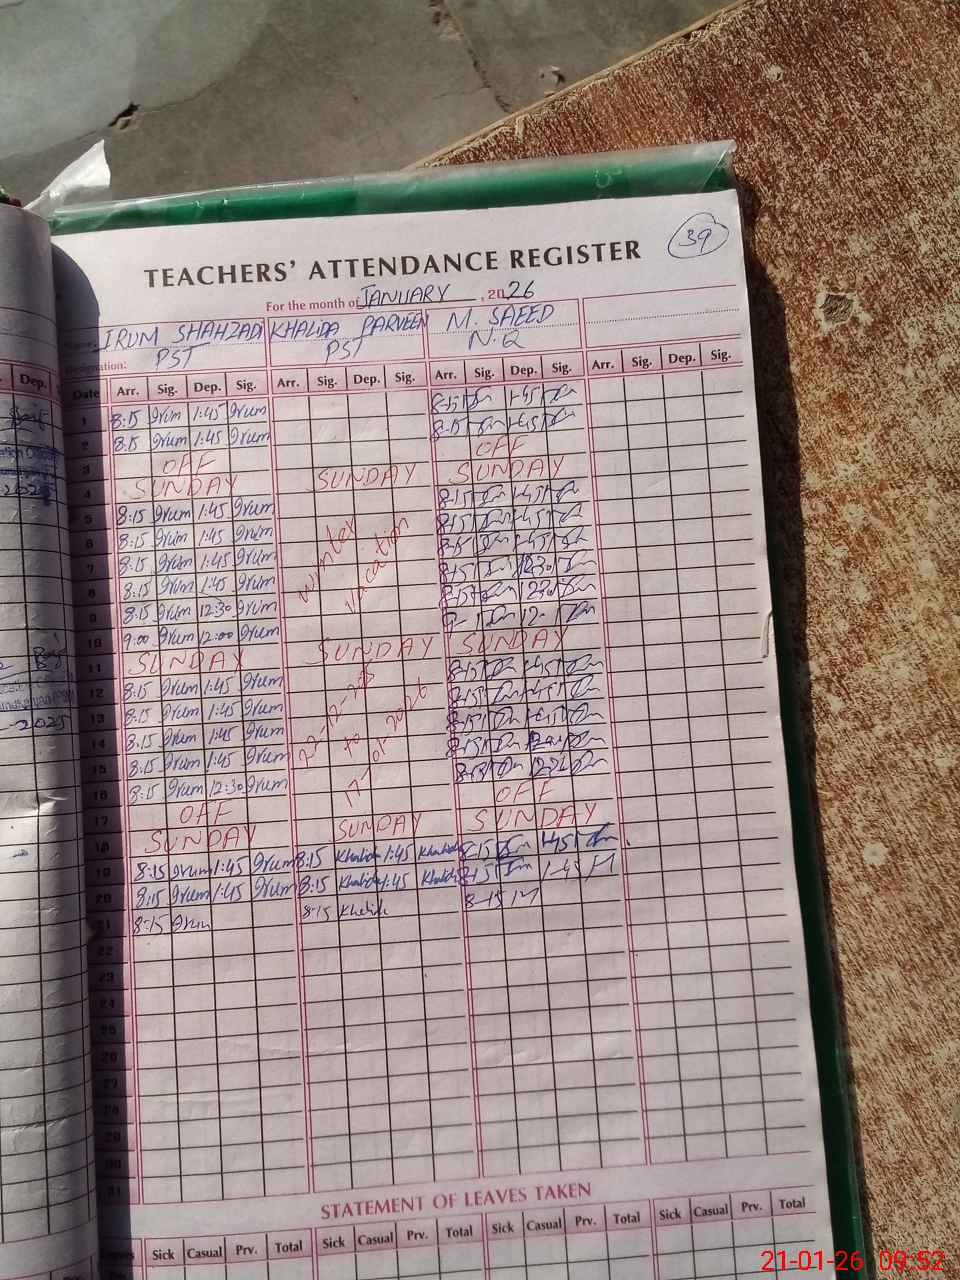 39
TEACHERS' ATTENDANCE REGISTER
For the month of JANUARY, 2026
IRUM SHAHZADI KHALIDA PARVEEN M. SAEED
PST PST N.Q
Designation:
Dep.
Date Arr. Sig. Dep. Sig. Arr. Sig. Dep. Sig. Arr. Sig. Dep. Sig. Arr. Sig. Dep. Sig.
1 8:15 Irum 1:45 Irum 8-15 1-45
2 8:15 Irum 1:45 Irum 8-15 1-45
3 OFF OFF
4 SUNDAY SUNDAY SUNDAY
5 8:15 Irum 1:45 Irum 8-15 1-45
6 8:15 Irum 1:45 Irum 8-15 1-45
7 8:15 Irum 1:45 Irum winter vacation 8-15 1-45
8 8:15 Irum 1:45 Irum 8-15 12-30
9 8:15 Irum 12:30 Irum 8-15 12-30
10 9:00 Irum 12:00 Irum 9- 12-
11 SUNDAY SUNDAY SUNDAY
12 8:15 Irum 1:45 Irum 8-15 1-45
13 8:15 Irum 1:45 Irum 22-12-2025 8-15 1-45
14 8:15 Irum 1:45 Irum to 8-15 1-45
15 8:15 Irum 1:45 Irum 17-01-2026 8-15
16 8:15 Irum 12:30 Irum 8-15
17 OFF OFF
18 SUNDAY SUNDAY SUNDAY
19 8:15 Irum 1:45 Irum 8:15 Khalida 1:45 Khalida 8-15 1-45
20 8:15 Irum 1:45 Irum 8:15 Khalida 1:45 Khalida 8-15 1-45
21 8:15 Irum 8:15 Khalida 8-15
22
23
24
25
26
27
28
29
30
31
STATEMENT OF LEAVES TAKEN
Leaves Sick Casual Prv. Total Sick Casual Prv. Total Sick Casual Prv. Total Sick Casual Prv. Total
2025
2025
21-01-26 09:52